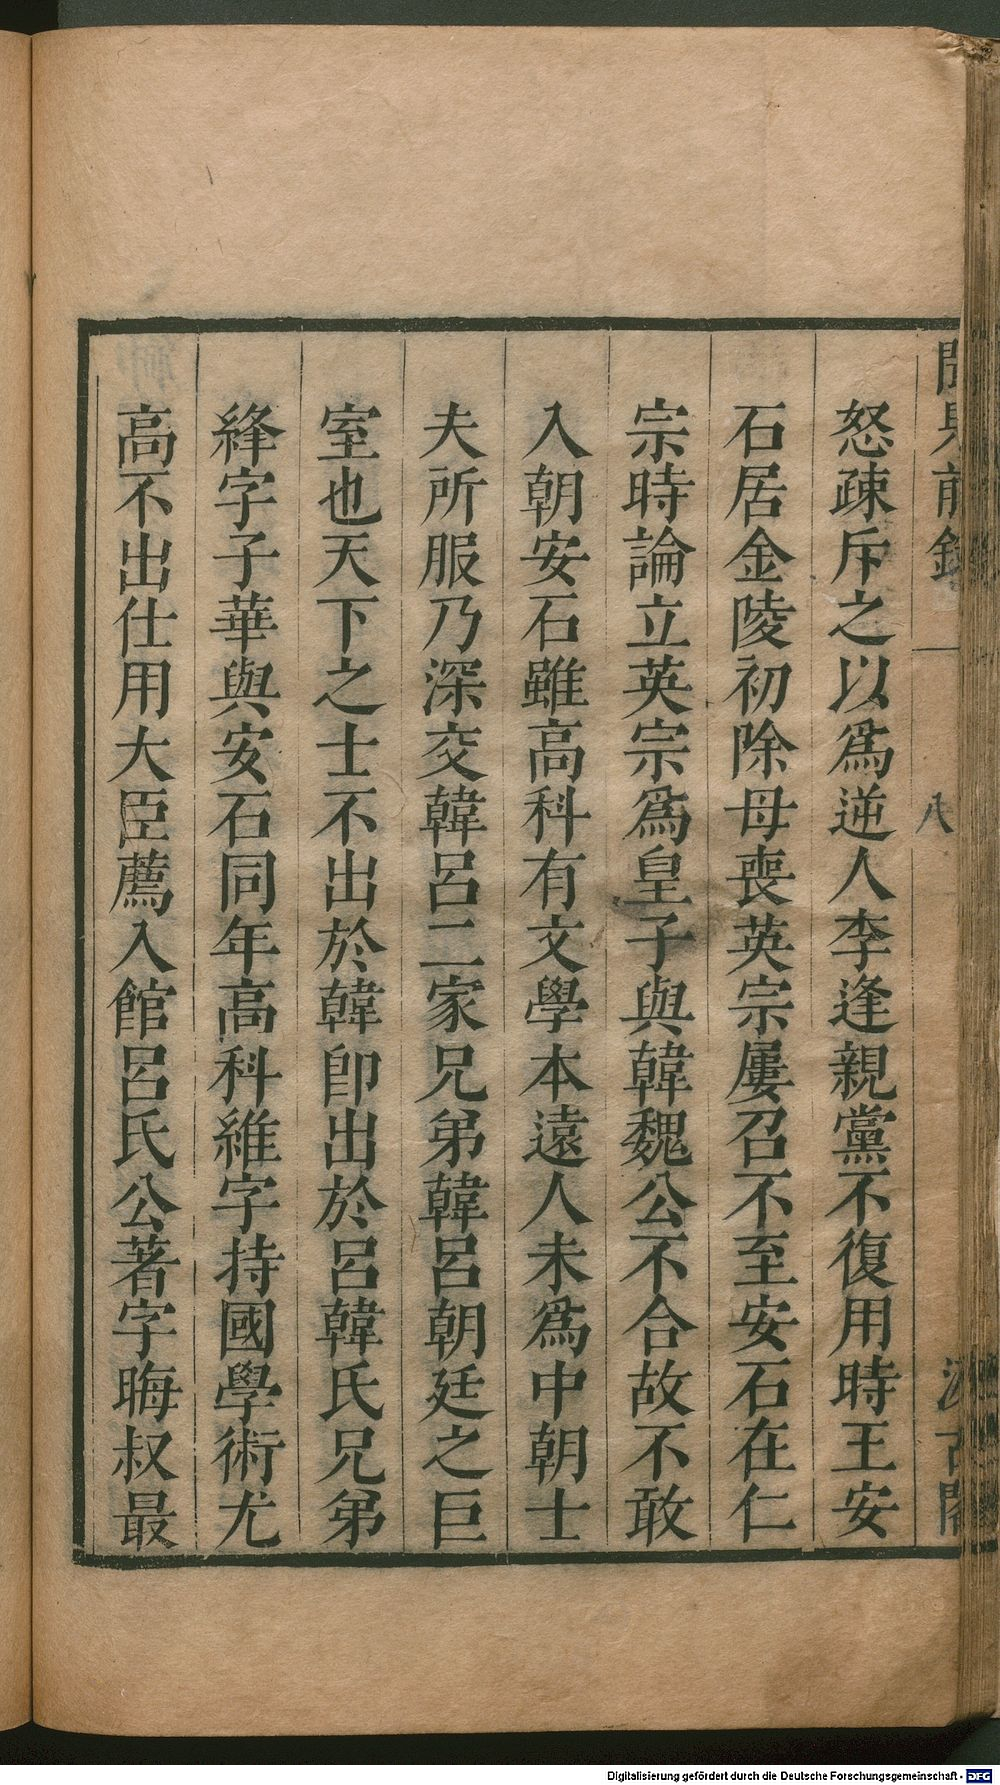 聞見前錄
八
汲古閣
怒疎斥之以爲逆人李逢親黨不復用時王安
石居金陵初除母喪英宗屢召不至安石在仁
宗時論立英宗爲皇子與韓魏公不合故不敢
入朝安石雖高科有文學本遠人未爲中朝士
夫所服乃深交韓呂二家兄弟韓呂朝廷之巨
室也天下之士不出於韓卽出於呂韓氏兄弟
絳字子華與安石同年高科維字持國學術尤
高不出仕用大臣薦入館呂氏公著字晦叔最
Digitalisierung gefördert durch die Deutsche Forschungsgemeinschaft - DFG